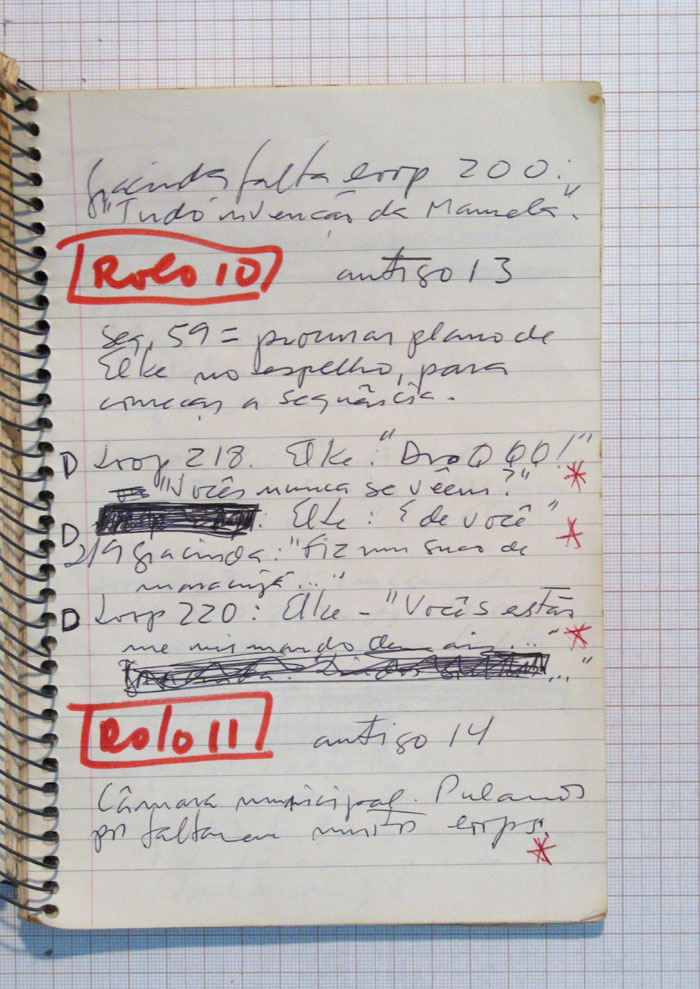 Gracinda falta loop 200:
"Tudo invenção da Manuela".
Rolo 10 antigo 13
Seq. 59 = procurar plano de
Elke no espelho, para
começar a sequência.
D Loop 218. Elke:
"Vocês nunca se vêem?" *
D : Elke: E de você" *
219 Gracinda: "Fiz um suco de
maracujá..."
D Loop 220: Elke - "Vocês estão
me mimando demais..." *
Rolo 11 antigo 14
Câmara municipal. Pulamos
por faltarem muitos loops. *